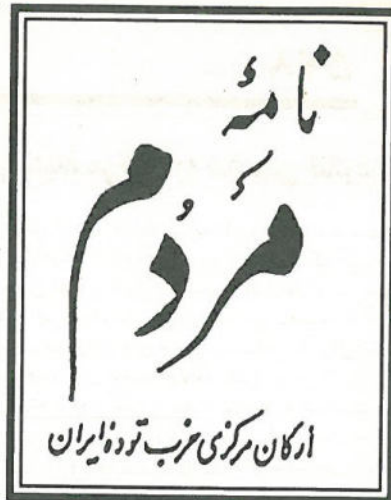 نامهٔ
مَردُم
ارگان مرکزی حزب تودهٔ ایران